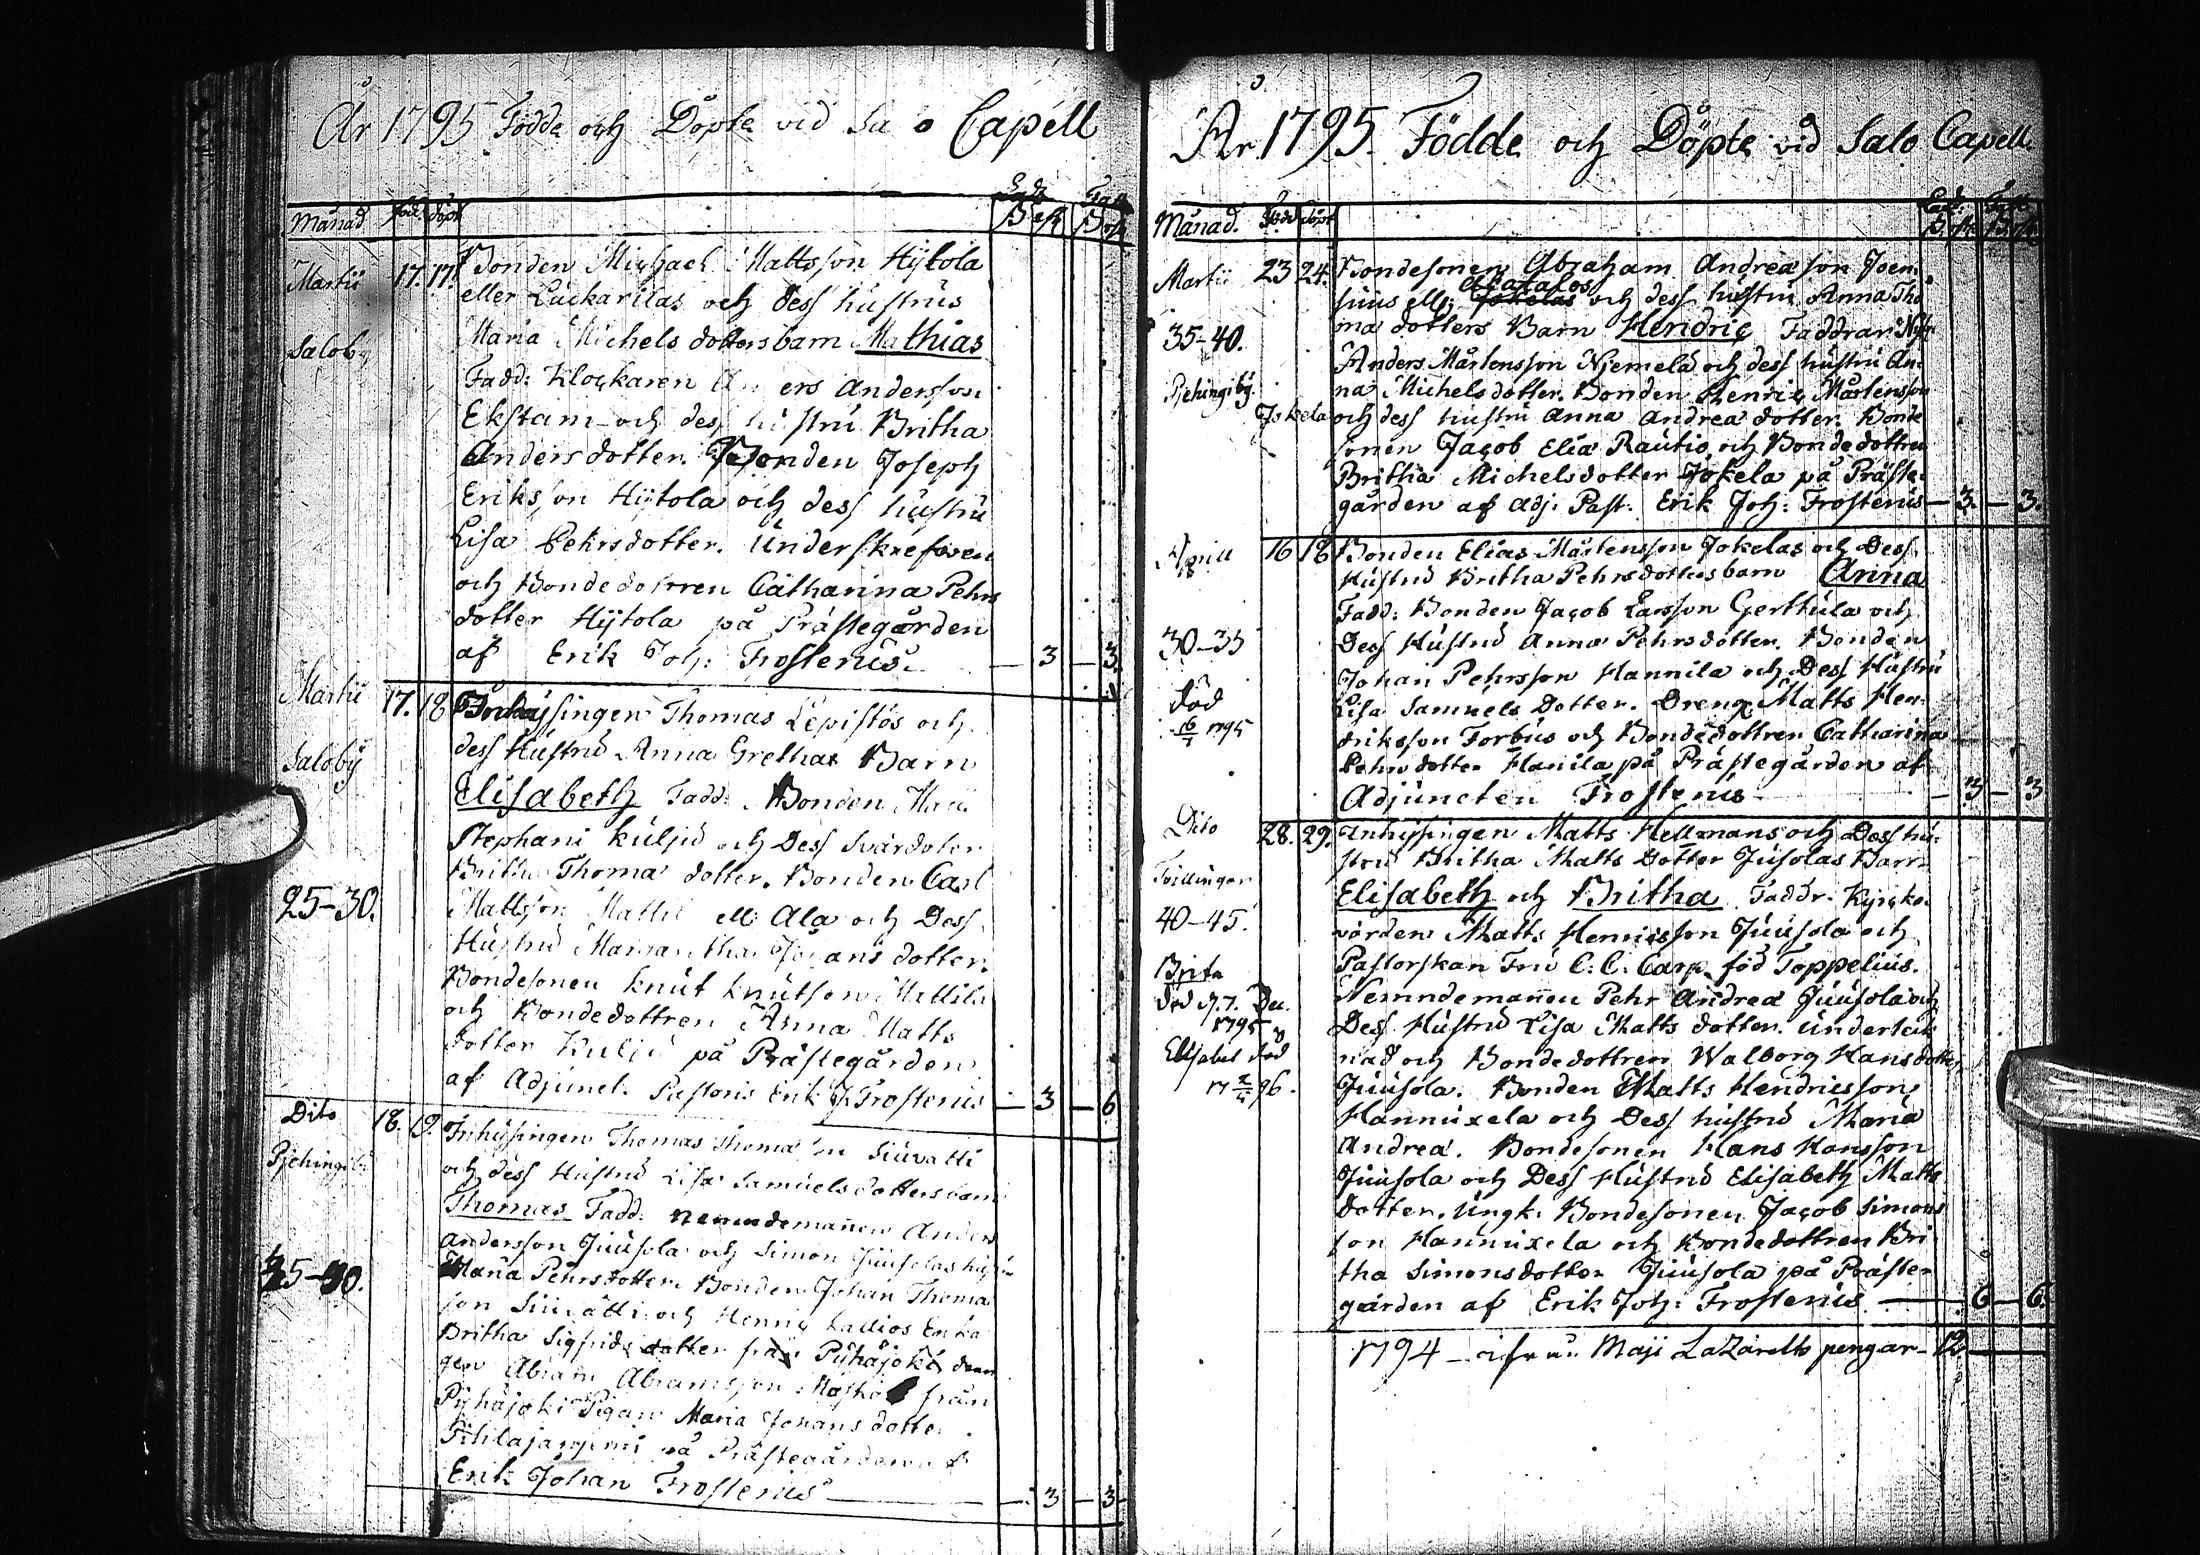 År 1795 Födde och Döpte vid Sa o Capell
Månad född döpt
Martii 17. 17. Bonden Michael Mattsson Hÿtola
eller Lackarilas och dess hustrus
Saloby Maria Michels dotters barn Mathias
Fadd: Klockaren An ers Andersson
Ekstam och dess hustru Britha
Anders dotter. Bonden Joseph
Eriksson Hÿtola och dess hustru
Lisa Pehrsdotter. Underskrefwen
och Bondedottren Catharina Pehrs
dotter Hÿtola på Prästegården
af Erik Joh: Frosterus — 3 — 3.
Martii 17. 18 Inhysingen Thomas Lepistös och
dess Hustru Anna Grethas Barn
Saloby Elisabeth Fadd: Bonden
Stephani Kuljú och Dess Svärdoter
Britha Thoma dotter. Bonden Carl
25–30. Mattsson Mattil ell: Ala och Dess
Hustru Margaretha Johans dotter.
Bondesonen Knut Knutson Mattila
och Bondedottren Anna Matts
dotter Kuljú på Prästegården
af Adjunct. Pastoris Erik J. Frosterus — 3 — 6
Dito 18. 19. Inhysingen Thomas Thoma on Siuvatti
Pjehingiby och dess Hustru Lisa Samuelsdotters barn
Thomas Fadd: Nemndemannen Anders
Andersson Juusola och Simon Juusolas hustru
25–30. Maria Pehrsdotter Bonden Johan Thoma
son Siuvatti och Henric Kallios Enka
Britha Sigfrids dotter från Pÿhäjoki dren
gen Abram Abramsson från
Pÿhäjoki Pigan Maria Johans dotter
på Prästegården af
Erik Johan Frosterus — 3 — 3
År 1795. Födde och Döpte vid Salo Capell.
Månad. Född Döpt
Martii 23 24. Bondesonen Abraham Andreæson Joen-
suus ell: Jokelas och dess hustru Anna Tho
35–40. mæ dotters Barn Hendric Faddrar:
Anders Mårtensson Njemelä och dess hustru An-
Pjehingiby. na Michelsdotter. Bonden Henric Mårtensson
Jokela och dess hustru Anna Andreæ dotter. Bonde
sonen Jacob Eliæ Rautio, och Bondedottren
Britha Michelsdotter Jokela på Präste-
gården af Adj: Past: Erik Joh: Frosterus — 3. — 3.
April 16 18 Bonden Elias Mårtensson Jokelas och Dess
Hustru Britha Pehrsdotters barn Anna
Fadd: Bonden Jacob Larsson Gerttula och
30–35 Dess Hustru Anna Pehrsdotter. Bonden
Johan Pehrsson Hannila och Dess Hustru
död Lisa Samuels Dotter. Dreng. Matts Hen-
1795 driksson Forbus och Bondedottren Catharina
Pehrsdotter Hanila på Prästegården af
Adjuncten Frosterus — 3 — 3
Dito 28. 29. Inhysingen Matts Hellmans och Dess hu-
stru Britha Matts Dotter Jusolas Barn
Tvillingar Elisabeth och Britha Faddr. Kyrcko-
40–45. värden Matts Henricsson Juusola och
Pastorskan Fru C: C: Carp född Toppelius.
Brita Nemndemannen Pehr Andreæ Juusola och
död 17. Dec. Dess Hustru Lisa Matts dotter. Underteck
1795 nad och Bondedottren Walborg Hansdotter
Elisabet död Juusola. Bonden Matts Hendricsson
17 96. Hannuxela och Dess hustru Maria
Andreæ. Bondesonen Hans Hansson
Juusola och Dess Hustru Elisabeth Matts
dotter. Ungk: Bondesonen Jacob Simons
son Hannuxela och Bondedottren Bri-
tha Simonsdotter Juusola på Präste-
gården af Erik Joh: Frosterus — 6 — 6.
1794 — Maji Lazaretts pengar — 12 —